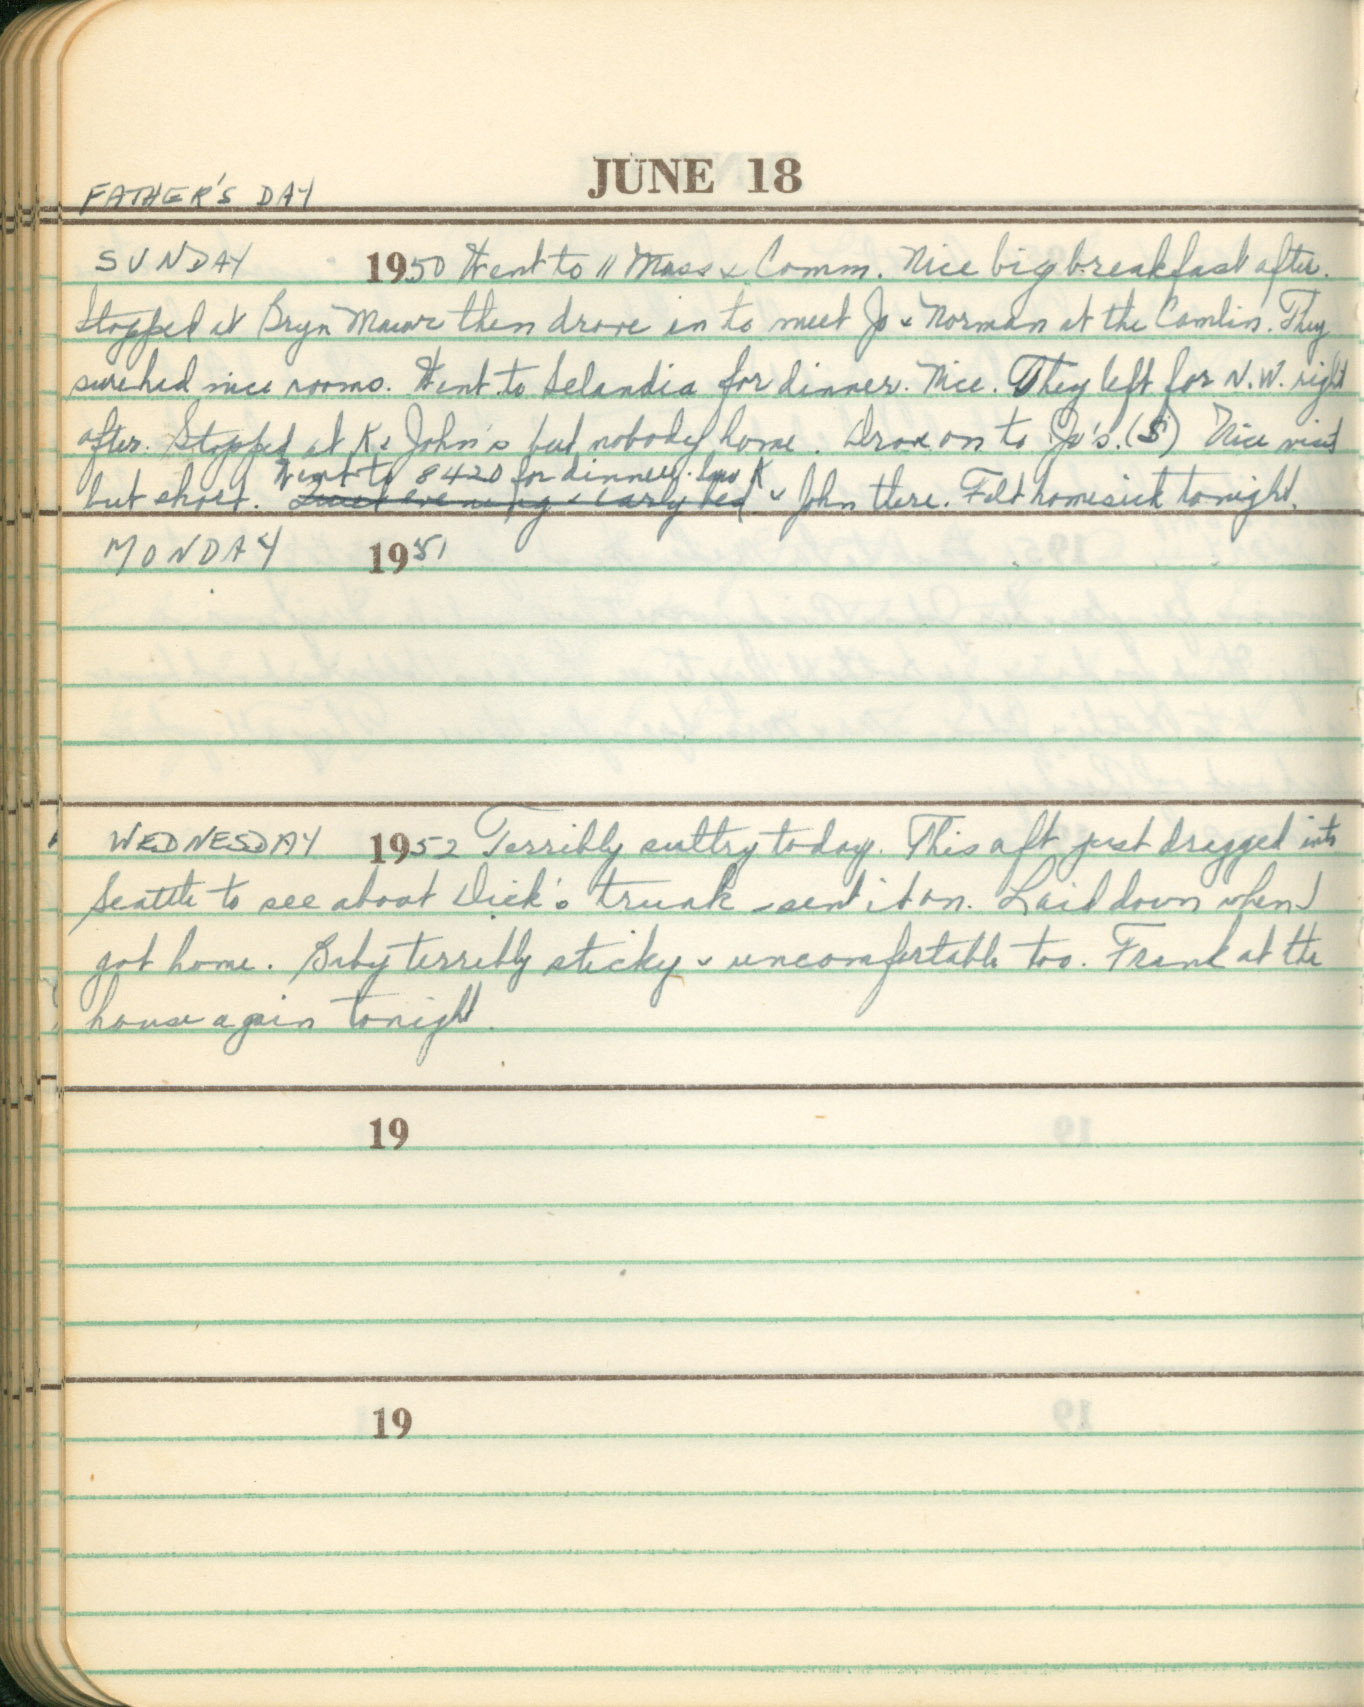 JUNE 18
FATHER'S DAY
SUNDAY 1950 Went to 11 Mass & Comm. Nice big breakfast after.
Stopped at Bryn Mawr then drove in to meet Jo & Norman at the Camlin. They
sure had nice rooms. Went to Selandia for dinner. Nice. They left for N.W. right
after. Stopped at K & John's but nobody home. Drove on to Jo's. (S) Nice visit
Went to 8420 for dinner. K
but short. Quiet evening & early bed & John there. Felt homesick tonight.
MONDAY 1951
WEDNESDAY 1952 Terribly sultry today. This aft just dragged into
Seattle to see about Dick's trunk & sent it on. Laid down when I
got home. Baby terribly sticky & uncomfortable too. Frank at the
house again tonight.
19
19